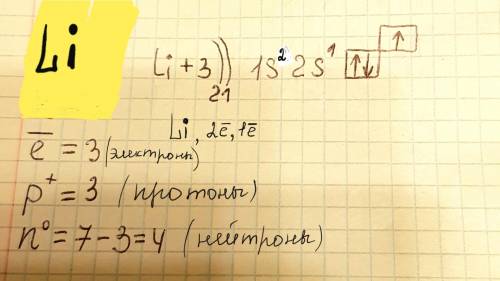 Li
Li +3 )) 1S² 2S¹ ↑↓ ↑
2 1
Li, 2ē, 1ē
ē = 3 (электроны)
p⁺ = 3 (протоны)
n⁰ = 7 - 3 = 4 (нейтроны)